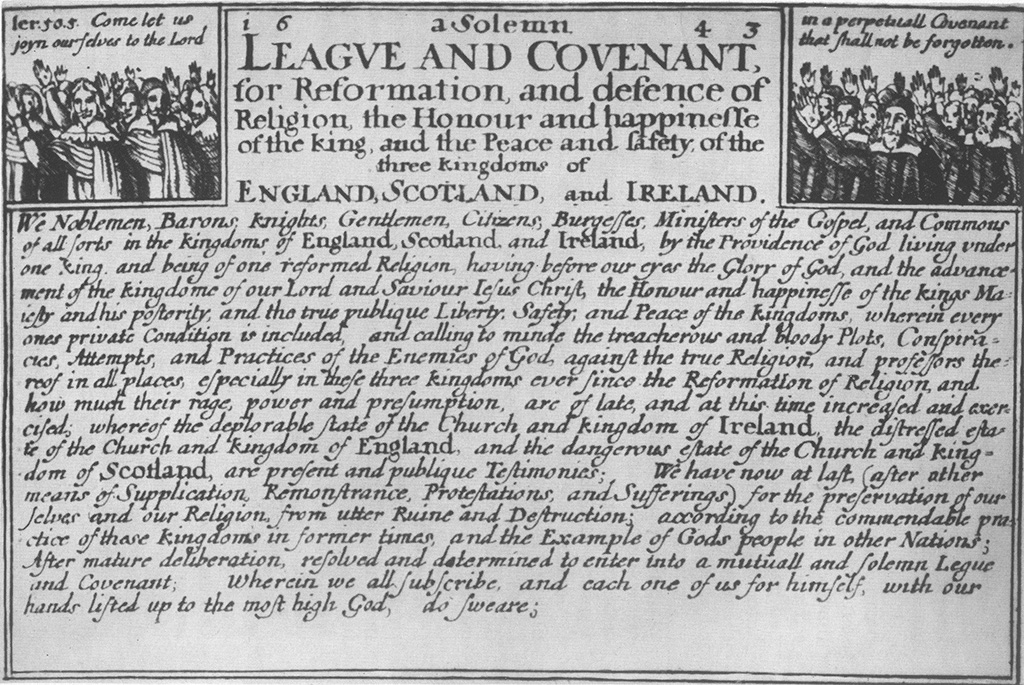 Ier.50.5. Come let us
joyn ourselves to the Lord
1 6 a Solemn 4 3
LEAGVE AND COVENANT,
for Reformation, and defence of
Religion, the Honour and happinesse
of the king, and the Peace and safety of the
three kingdoms of
ENGLAND, SCOTLAND, and IRELAND.
in a perpetuall Covenant
that shall not be forgotten.
We Noblemen, Barons, knights, Gentlemen, Citizens, Burgesses, Ministers of the Gospel, and Commons
of all sorts in the kingdoms of England, Scotland, and Ireland, by the Providence of God living vnder
one king, and being of one reformed Religion, having before our eyes the Glory of God, and the advance-
ment of the kingdome of our Lord and Saviour Iesus Christ, the Honour and happinesse of the kings Ma-
iesty and his posterity, and the true publique Liberty, Safety, and Peace of the kingdoms, wherein every
ones private Condition is included, and calling to minde the treacherous and bloody Plots, Conspira-
cies, Attempts, and Practices of the Enemies of God, against the true Religion, and professors the-
reof in all places, especially in these three kingdoms ever since the Reformation of Religion, and
how much their rage, power and presumption, are of late, and at this time increased and exer-
cised; whereof the deplorable state of the Church and kingdom of Ireland, the distressed esta-
te of the Church and kingdom of England, and the dangerous estate of the Church and king-
dom of Scotland, are present and publique Testimonies; We have now at last, (after other
means of Supplication, Remonstrance, Protestations, and Sufferings) for the preservation of our
selves and our Religion, from utter Ruine and Destruction; according to the commendable pra-
ctice of these kingdoms in former times, and the Example of Gods people in other Nations;
After mature deliberation, resolved and determined to enter into a mutuall and solemn Legue
and Covenant; Wherein we all subscribe, and each one of us for himself, with our
hands lifted up to the most high God, do sweare;